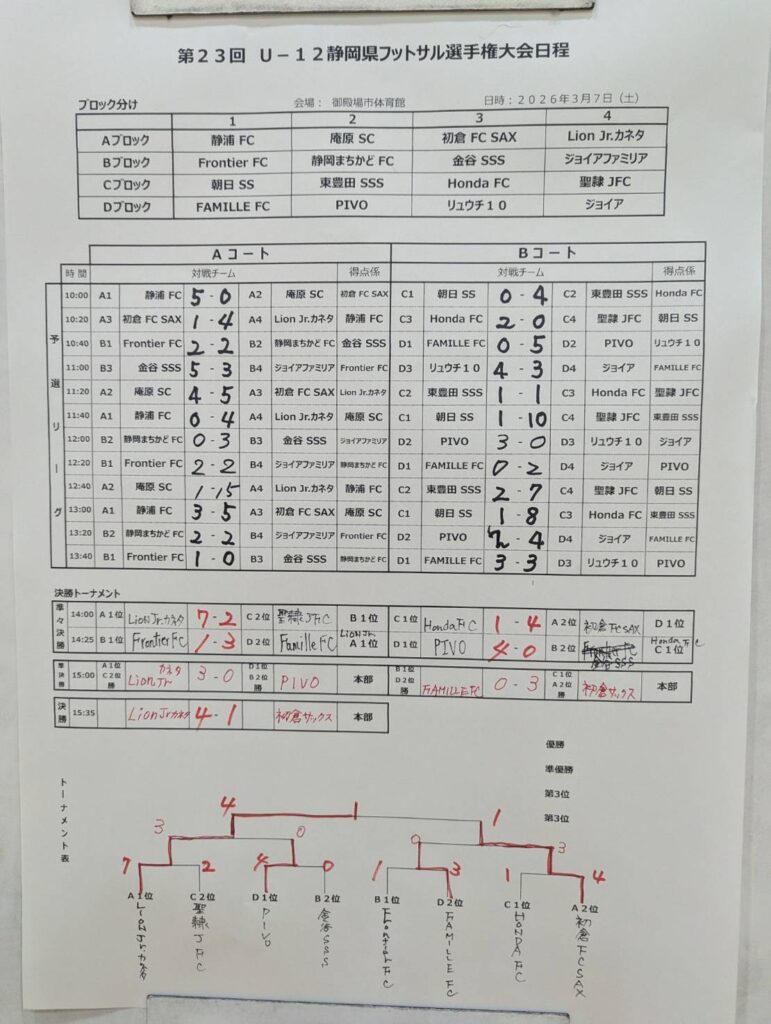 第23回 U-12静岡県フットサル選手権大会日程
ブロック分け 会場: 御殿場市体育館 日時:2026年3月7日(土)
1 2 3 4
Aブロック 静浦 FC 庵原 SC 初倉 FC SAX Lion Jr.カネタ
Bブロック Frontier FC 静岡まちかど FC 金谷 SSS ジョイアファミリア
Cブロック 朝日 SS 東豊田 SSS Honda FC 聖隷 JFC
Dブロック FAMILLE FC PIVO リュウチ10 ジョイア
Aコート Bコート
時間 対戦チーム 得点係 対戦チーム 得点係
予選リーグ
10:00 A1 静浦 FC 5-0 A2 庵原 SC 初倉 FC SAX C1 朝日 SS 0-4 C2 東豊田 SSS Honda FC
10:20 A3 初倉 FC SAX 1-4 A4 Lion Jr.カネタ 静浦 FC C3 Honda FC 2-0 C4 聖隷 JFC 朝日 SS
10:40 B1 Frontier FC 2-2 B2 静岡まちかど FC 金谷 SSS D1 FAMILLE FC 0-5 D2 PIVO リュウチ10
11:00 B3 金谷 SSS 5-3 B4 ジョイアファミリア Frontier FC D3 リュウチ10 4-3 D4 ジョイア FAMILLE FC
11:20 A2 庵原 SC 4-5 A3 初倉 FC SAX Lion Jr.カネタ C2 東豊田 SSS 1-1 C3 Honda FC 聖隷 JFC
11:40 A1 静浦 FC 0-4 A4 Lion Jr.カネタ 庵原 SC C1 朝日 SS 1-10 C4 聖隷 JFC 東豊田 SSS
12:00 B2 静岡まちかど FC 0-3 B3 金谷 SSS ジョイアファミリア D2 PIVO 3-0 D3 リュウチ10 ジョイア
12:20 B1 Frontier FC 2-2 B4 ジョイアファミリア 静岡まちかど FC D1 FAMILLE FC 0-2 D4 ジョイア PIVO
12:40 A2 庵原 SC 1-15 A4 Lion Jr.カネタ 静浦 FC C2 東豊田 SSS 2-7 C4 聖隷 JFC 朝日 SS
13:00 A1 静浦 FC 3-5 A3 初倉 FC SAX 庵原 SC C1 朝日 SS 1-8 C3 Honda FC 東豊田 SSS
13:20 B2 静岡まちかど FC 2-2 B4 ジョイアファミリア Frontier FC D2 PIVO 2-4 D4 ジョイア FAMILLE FC
13:40 B1 Frontier FC 1-0 B3 金谷 SSS 静岡まちかど FC D1 FAMILLE FC 3-3 D3 リュウチ10 PIVO
決勝トーナメント
準々決勝
14:00 A1位 Lion Jr.カネタ 7-2 C2位 聖隷JFC B1位 C1位 Honda FC 1-4 A2位 初倉FCSAX D1位
14:25 B1位 Frontier FC 1-3 D2位 Famille FC Lion Jr. A1位 D1位 PIVO 4-0 B2位 金谷SSS Honda FC C1位
準決勝 15:00 A1位 C2位 勝 Lion Jr カネタ 3-0 D1位 B2位 勝 PIVO 本部 B1位 D2位 勝 FAMILLE FC 0-3 C1位 A2位 勝 初倉サックス 本部
決勝 15:35 Lion Jrカネタ 4-1 初倉サックス 本部
優勝
準優勝
第3位
第3位
トーナメント表
4 1
3 0 0 3
7 2 4 0 1 3 1 4
A1位 C2位 D1位 B2位 B1位 D2位 C1位 A2位
Lion Jr.カネタ 聖隷JFC PIVO 金谷SSS Frontier FC FAMILLE FC HONDA FC 初倉FCSAX